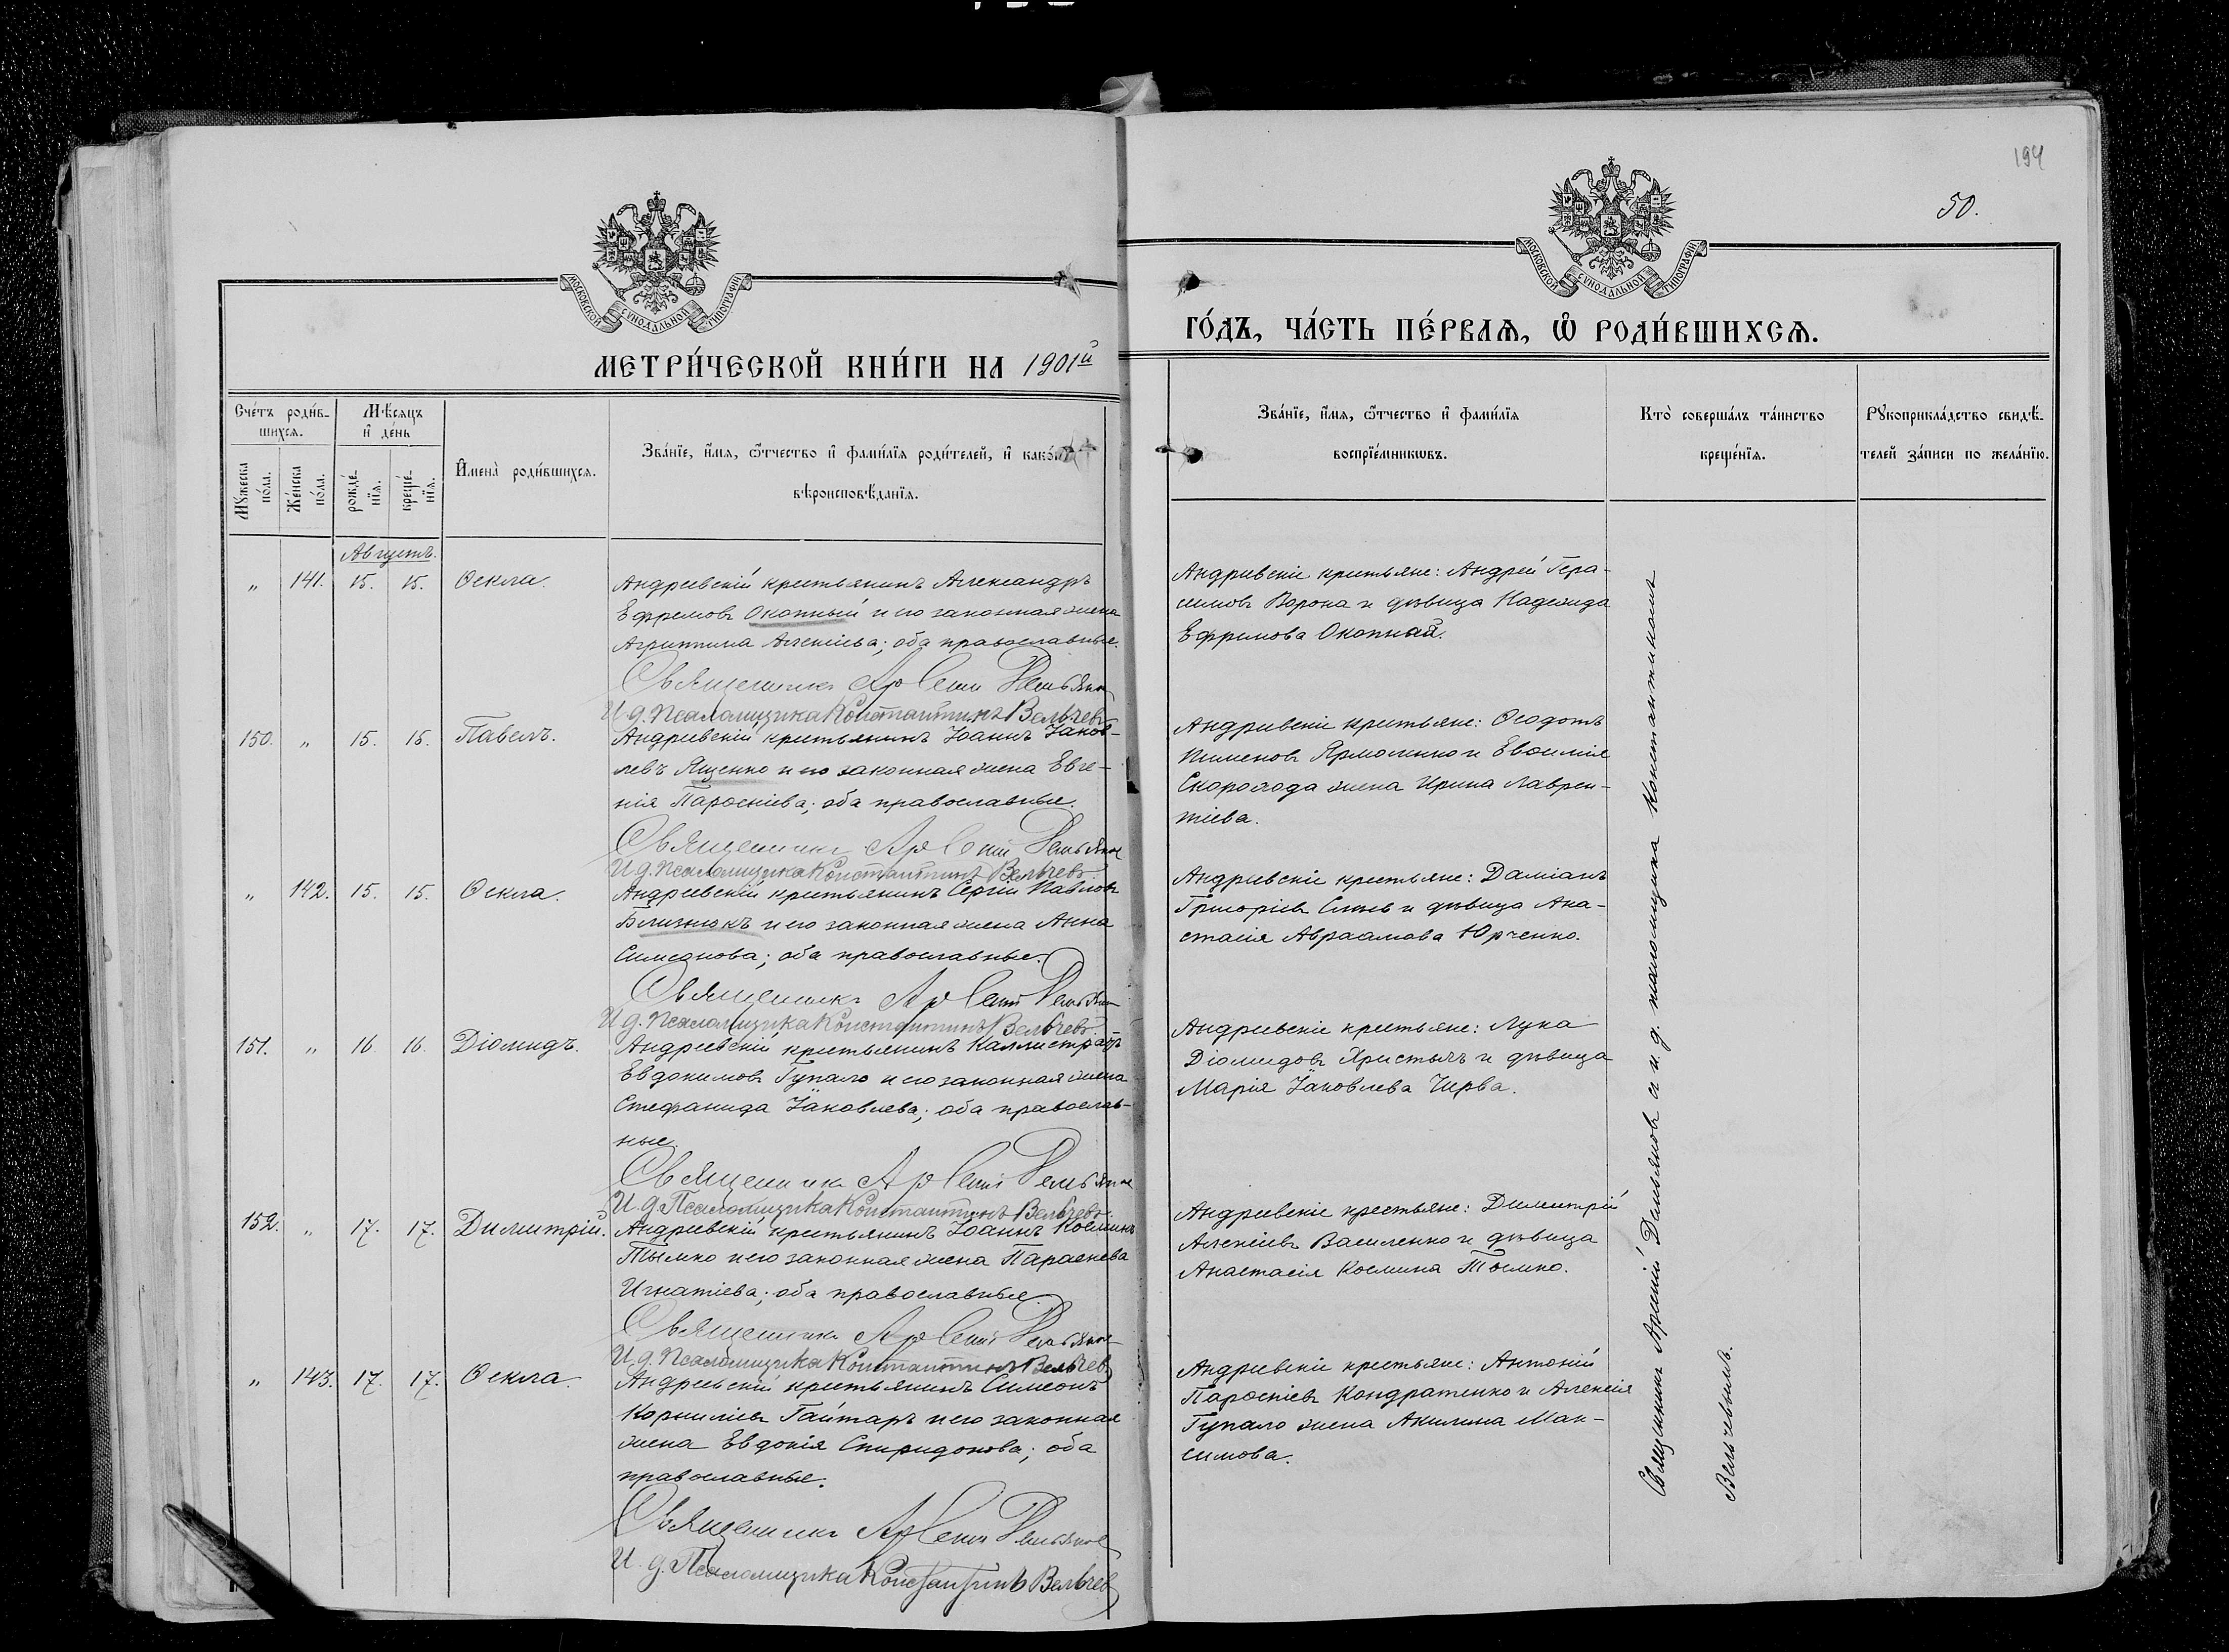 194
50.
МОСКОВСКОЙ СѴНОДАЛЬНОЙ ТИПОГРАФІИ
МОСКОВСКОЙ СѴНОДАЛЬНОЙ ТИПОГРАФІИ
МЕТРИ́ЧЕСКОЙ КНИ́ГИ НА 1901й
ГО́ДЪ, ЧА́СТЬ ПЕ́РВАѦ, Ѡ РОДИ́ВШИХСѦ.
Сче́тъ роди́в-
шихсѧ.
Мѣ́сѧцъ
и҆ де́нь
Мꙋжеска по́ла.
Же́нска по́ла.
рожде́-
нїѧ.
креще́-
нїѧ.
И҆мена̀ роди́вшихсѧ.
Зва́нїе, и҆́мѧ, ѻ҆́тчество и҆ фами́лїѧ роди́телей, и҆ како́гѡ
вѣроисповѣ́данїѧ.
Зва́нїе, и҆́мѧ, ѻ҆́тчество и҆ фами́лїѧ
воспрїе́мникѡвъ.
Кто̀ соверша́лъ та́инство
креще́нїѧ.
Рꙋкоприкла́дство свидѣ́-
телей за́писи по жела́нїю.
Августъ.
„ 141. 15. 15. Ѳекла.
Андреевскій крестьянинъ Александръ
Ефремовъ Окопный и его законная жена
Агриппина Алексіева; оба православные.
Священникъ Арсеній Демьянов
И. д. Псаломщика Константинъ Вельчевъ
Андреевскіе крестьяне: Андрей Гера-
симовъ Ворона и дѣвица Надежда
Ефремова Окопная.
150. „ 15. 15. Павелъ.
Андреевскій крестьянинъ Іоаннъ Іаков-
левъ Ященко и его законная жена Евге-
нія Пароеніева; оба православные.
Священникъ Арсеній Демьянов
И. д. Псаломщика Константинъ Вельчевъ
Андреевскіе крестьяне: Ѳеодотъ
Пименовъ Ярмоленко и Евоимія
Скорохода жена Ирина Лаврен-
тіева.
„ 142. 15. 15. Ѳекла.
Андреевскій крестьянинъ Сергій Павловъ
Близнюкъ и его законная жена Анна
Симеонова; оба православные.
Священникъ Арсеній Демьянов
И. д. Псаломщика Константинъ Вельчевъ.
Андреевскіе крестьяне: Даміанъ
Григоріевъ и дѣвица Ана-
стасія Авраамова Юрченко.
151. „ 16 16. Діомидъ.
Андреевскій крестьянинъ Каллистратъ
Евдокимовъ Гупало и его законная жена
Стефанида Іаковлева; оба православ-
ные.
Священникъ Арсеній Демьянов
И. д. Псаломщика Константинъ Вельчевъ.
Андреевскіе крестьяне: Лука
Діомидовъ Христычъ и дѣвица
Марія Іаковлева Чирва.
152. „ 17. 17. Димитрій.
Андреевскій крестьянинъ Іоаннъ Косминъ
Тымко и его законная жена Параскева
Игнатіева; оба православные.
Священникъ Арсеній Демьянов
И. д. Псаломщика Константинъ Вельчев
Андреевскіе крестьяне: Димитрій
Алексіевъ Василенко и дѣвица
Анастасія Космина Тымко.
„ 143. 17. 17. Ѳекла.
Андреевскій крестьянинъ Симеонъ
Корниліевъ Гайтаръ и его законная
жена Евдокія Спиридонова; оба
православные.
Священникъ Арсеній Демьянов
И. д. Псаломщика Константинъ Вельчев
Андреевскіе крестьяне: Антоній
Пароеніевъ Кондратенко и Алексія
Гупало жена Акилина Мак-
симова.
Священникъ Арсеній Демьяновъ съ и. д. псаломщика Константиномъ
Вельчевымъ.